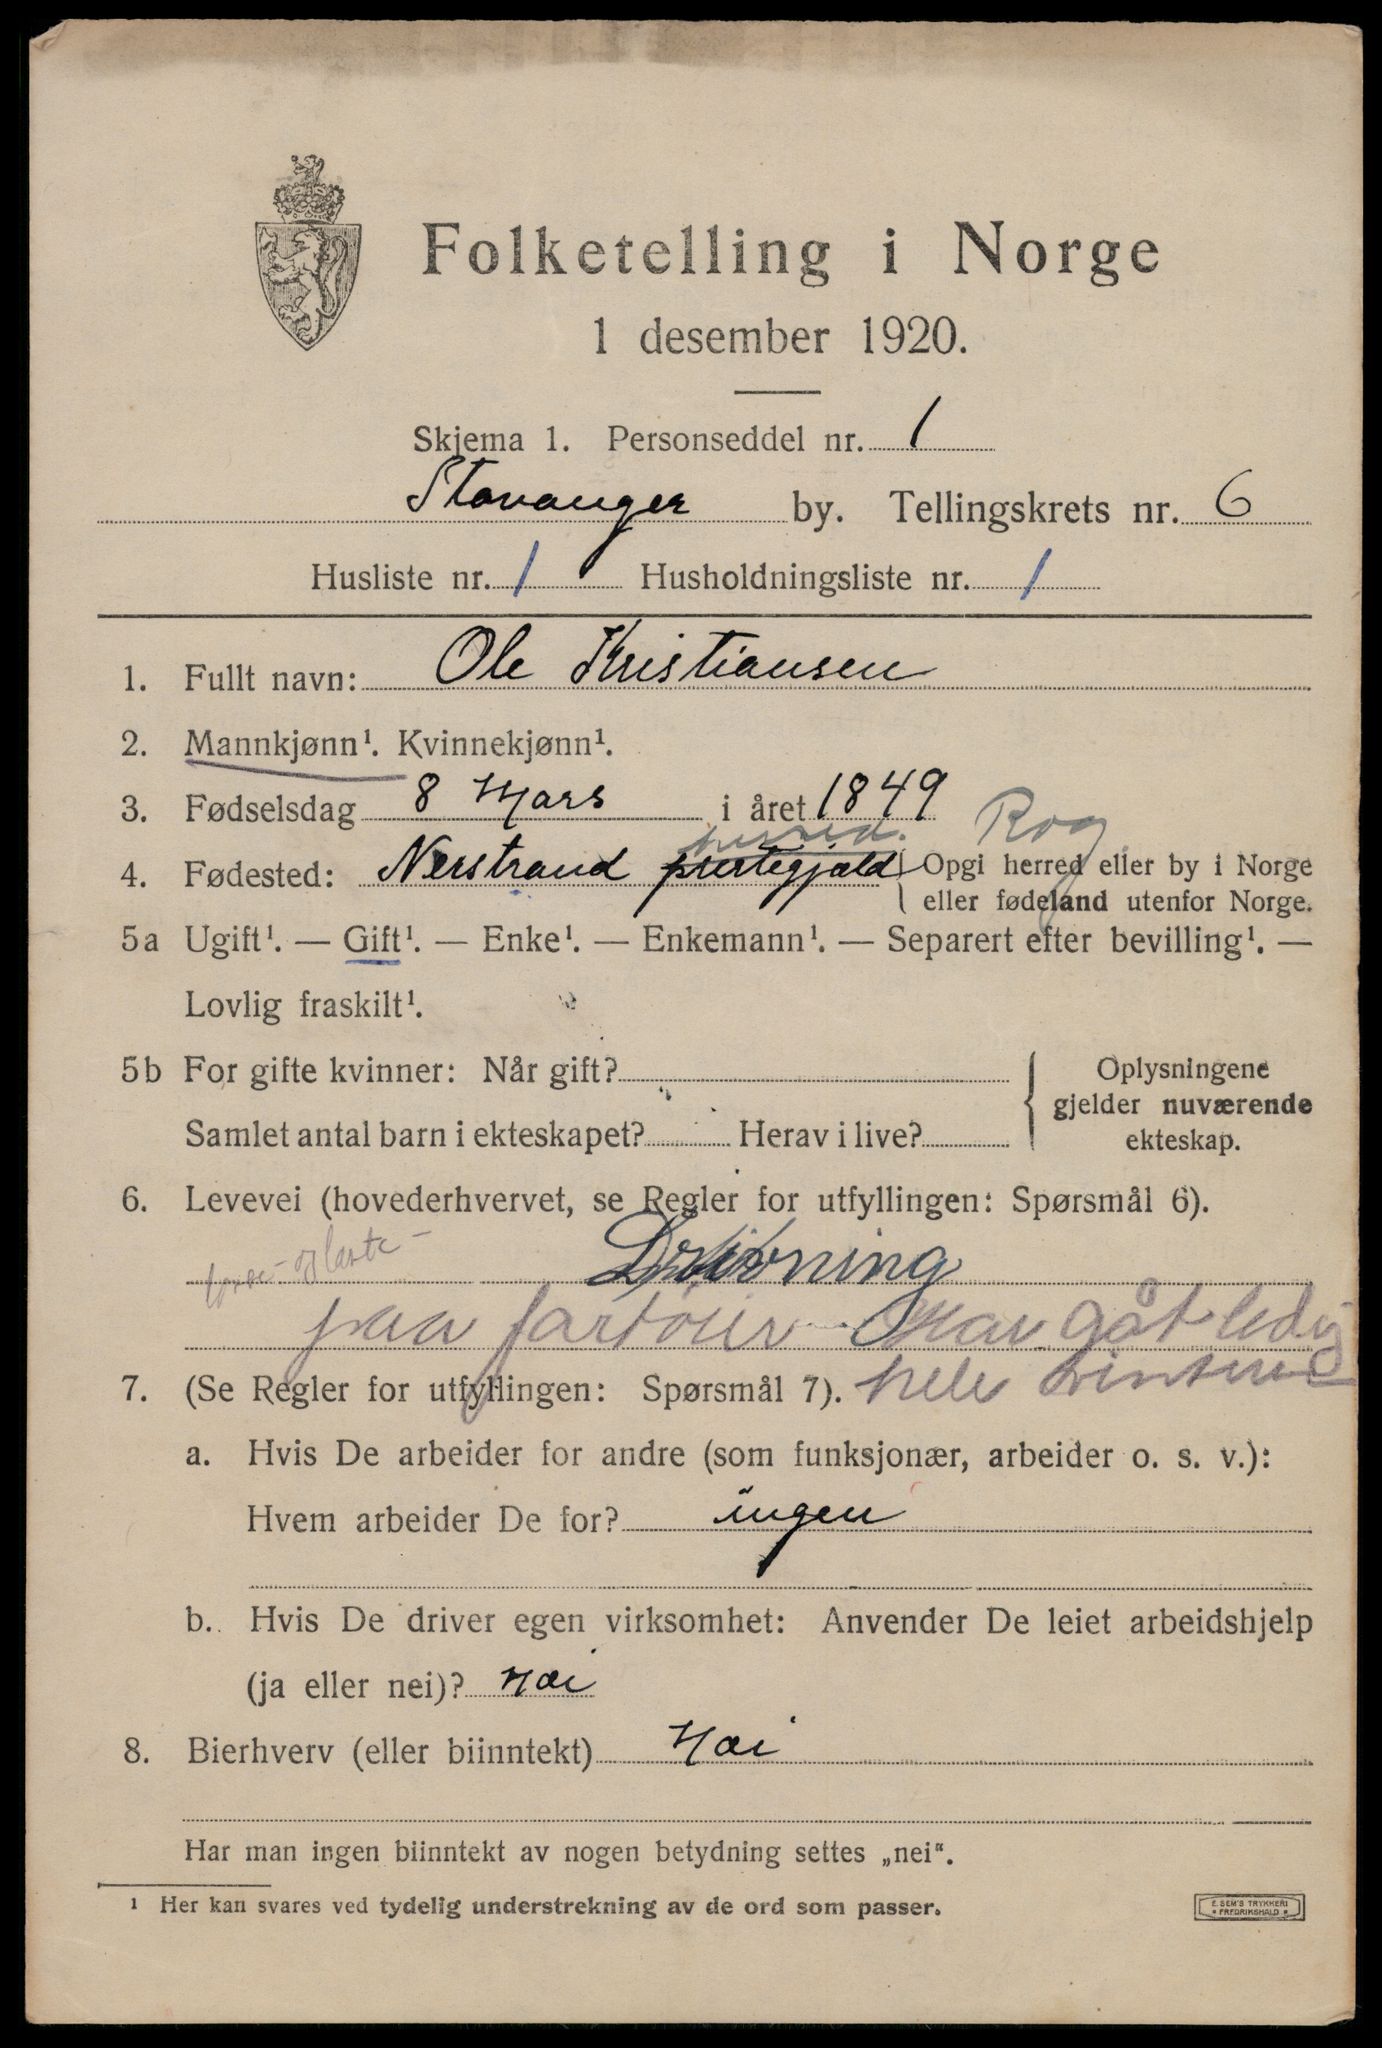 Folketelling i Norge
1 desember 1920.
Skjema 1. Personseddel nr. 1
Stavanger by. Tellingskrets nr. 6
Husliste nr. 1 Husholdningsliste nr. 1
1. Fullt navn: Ole Kristiansen
2. Mannkjønn¹. Kvinnekjønn¹.
3. Fødselsdag 8 Mars i året 1849
herred. Rog
4. Fødested: Nerstrand prestegjæld { Opgi herred eller by i Norge
eller fødeland utenfor Norge.
5a Ugift¹. — Gift¹. — Enke¹. — Enkemann¹. — Separert efter bevilling¹. —
Lovlig fraskilt¹.
5b For gifte kvinner: Når gift? { Oplysningene
gjelder nuværende
Samlet antal barn i ekteskapet? Herav i live? ekteskap.
6. Levevei (hovederhvervet, se Regler for utfyllingen: Spørsmål 6).
losse- og laste-
paa fartöier Har gåt ledig
7. (Se Regler for utfyllingen: Spørsmål 7). hele vinteren
a. Hvis De arbeider for andre (som funksjonær, arbeider o. s. v.):
Hvem arbeider De for? ingen
b. Hvis De driver egen virksomhet: Anvender De leiet arbeidshjelp
(ja eller nei)? Næi
8. Bierhverv (eller biinntekt) Næi
Har man ingen biinntekt av nogen betydning settes „nei“.
¹ Her kan svares ved tydelig understrekning av de ord som passer.
E. SEM'S TRYKKERI
* FREDRIKSHALD *